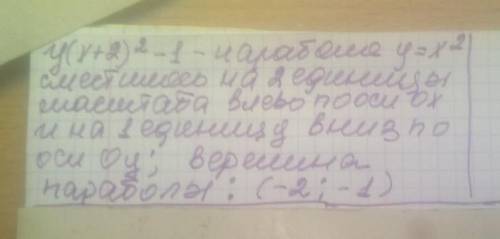 y(x+2)²-1 - парабола y=x²
сместилась на 2 единицы
масштаба влево по оси Ox
и на 1 единицу вниз по
оси Oy; вершина
параболы: (-2; -1)